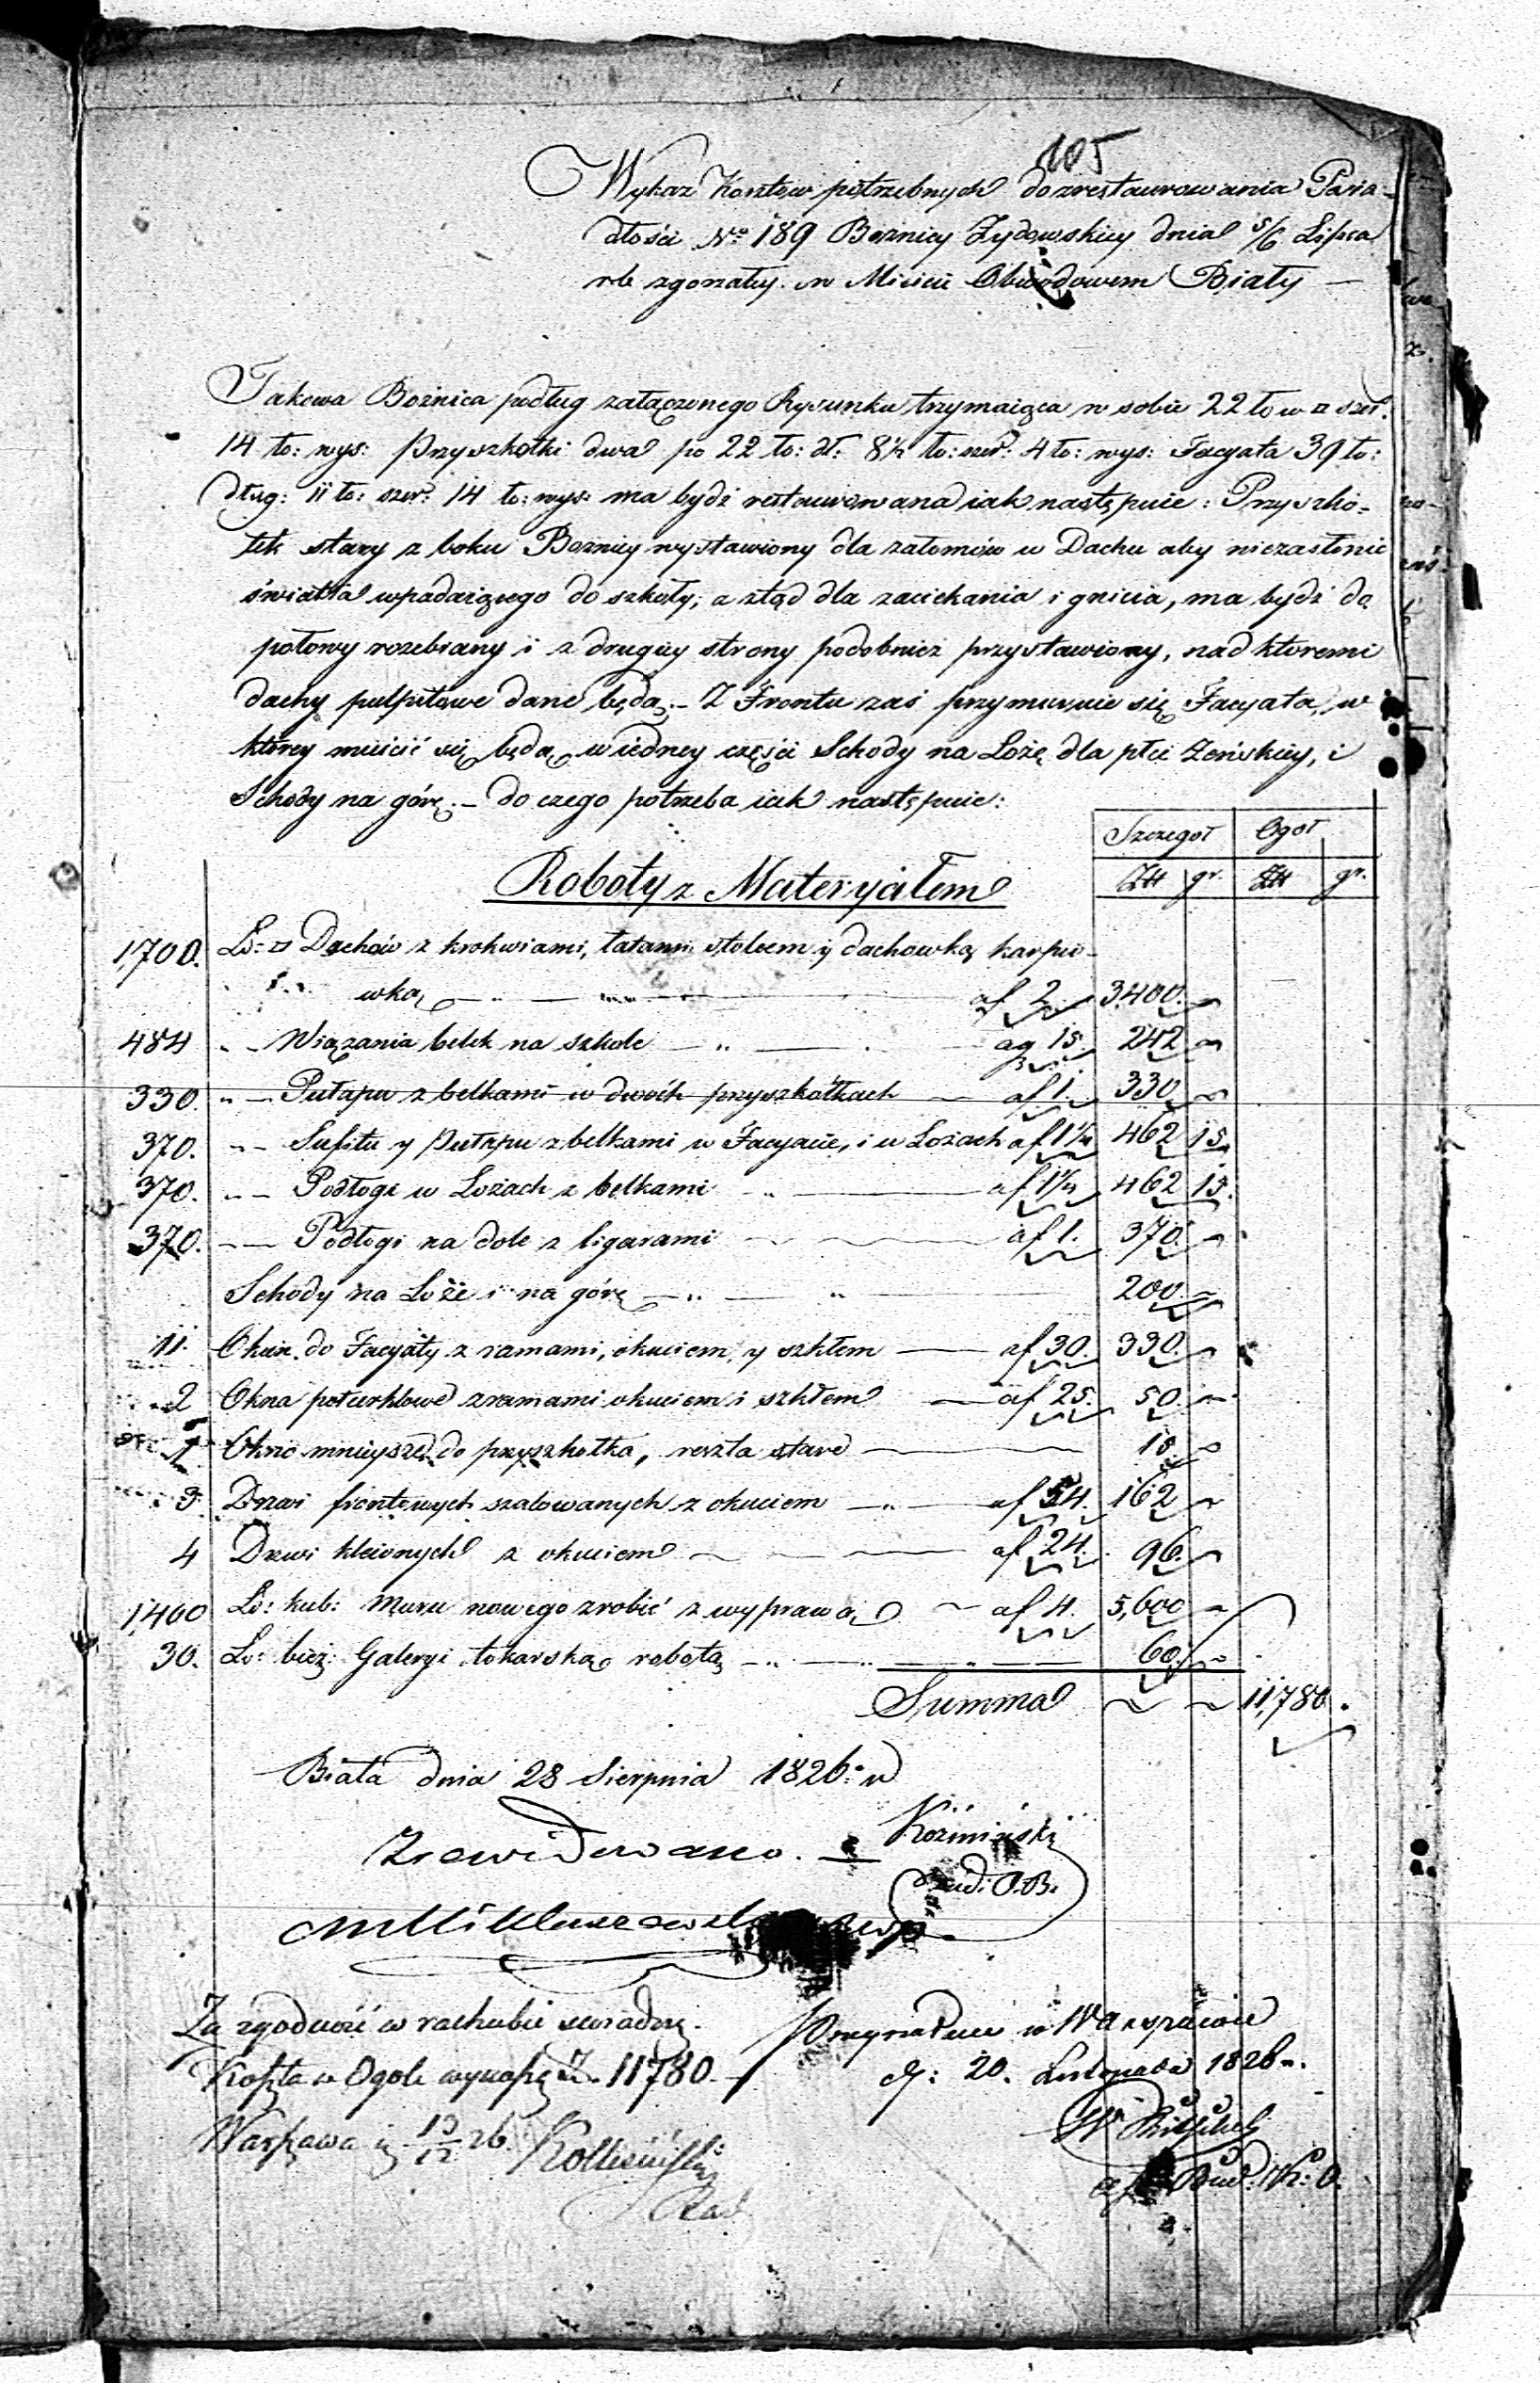 105
Wykaz Kosztow potrzebnych do zrestaurowania Posia-
dłości No 189 Boznicy Żydowskiey dnia 5/6 Lipca
rb zgorzałey w Mieście Obwodowem Biały —
Takowa Boźnica podług załączonego Rysunku trzymaiąca w sobie 22 łow □ szer.
14 ło: wys: Przyszkołki dwa po 22 ło: dł: 8½ ło: szer: 4 ło: wys: Facyata 39 ło:
dług: 11 ło: szer: 14 ło: wys: ma bydź restaurowana iak następuie: Przyszko-
łek stary z boku Boznicy wystawiony dla załomów w Dachu aby niezasłonić
światła wpadaiącego do szkoły, a ztąd dla zaciekania i gnicia, ma bydź do
połowy rozebrany i z drugiey strony podobnież przystawiony, nad ktoremi
dachy pulpitowe dane będą.- Z Frontu zaś przymuruie się Facyata, w
ktorey mieścić się będą w iedney części Schody na Lożę dla płci Żeńskiey, i
Schody na górę.- do czego potrzeba iak następuie:
Szczegoł Ogoł
Zł gr. Zł gr.
Roboty z Materyałem
1,700. Ło: □ Dachów z krokwiami, łatami stolcem y dachowką karpio-
wką af 2 3400.
484 „ — Wiązania belek na szkole ag 15. 242
330. „ — Pułapu z belkami w dwóch przyszkółkach af 1. 330
370. „ — Sufitu y Pułapu z belkami w Facyacie, i w Lożach af 1¼ 462 15.
370. „ — Podłogi w Lożach z belkami af 1¼ 462 15.
370. „ — Podłogi na dole z ligarami af 1. 370.
Schody na Loże i na górę 200.
11. Okien do Facyaty z ramami, okuciem, y szkłem af 30. 330.
2 Okna połcerklowe z ramami okuciem i szkłem af 25. 50.
1 Okno mnieysze do przyszkołka, reszta stare 15.
3 Drzwi frontowych szalowanych z okuciem af 54. 162
4 Drzwi kleionych z okuciem af 24. 96.
1,400 Ło: kub: Muru nowego zrobić z wyprawą af 4. 5,600
30. Ło: bież: Galeryi tokarską robotą 60.
Summa 11,780.
Biała dnia 28 Sierpnia 1826. r
Zrewidowano. Koźmiński
Bud. O.B.
Za zgodność w rachubie świadczę. Przeyrzałem w Warszawie
Koszta w Ogole wynoszą Zł. 11780. d: 20. Listopada 1826 r.
Warszawa d 13/12 26.
Rad
Bud. W.K. O.